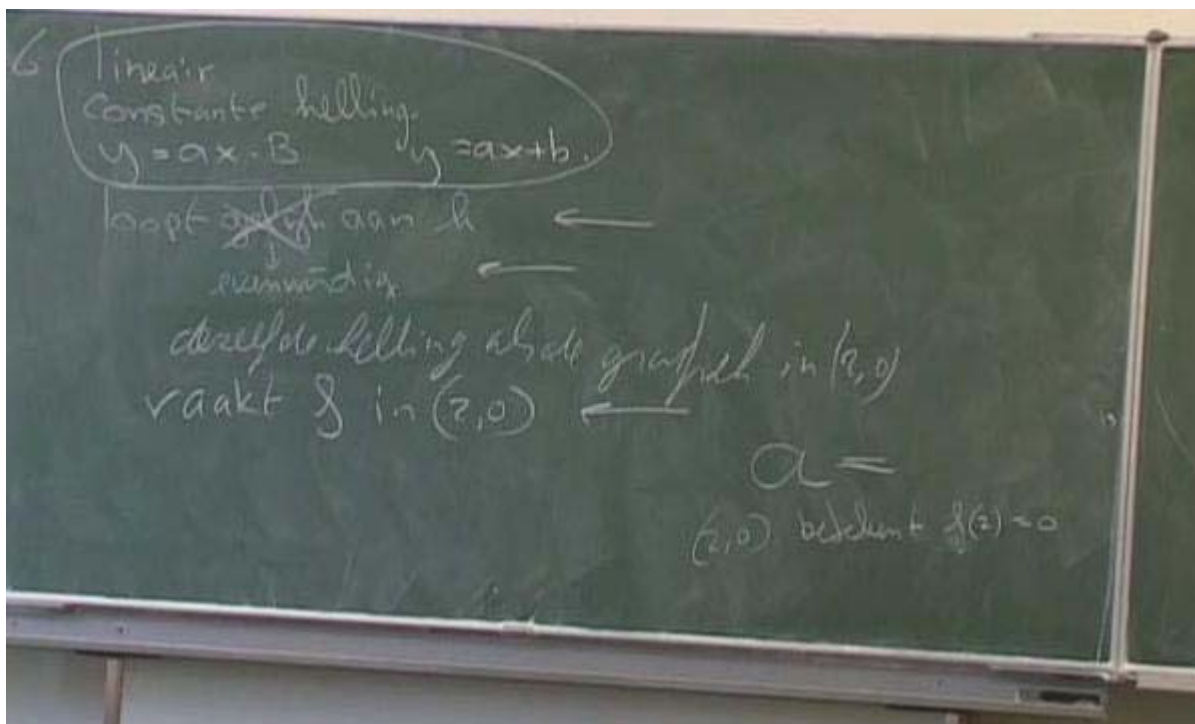 6 lineair
constante helling
y = ax - B y = ax + b.
loopt gelijk aan h ←
↓
evenwijdig ←
dezelfde helling als de grafiek in (2,0)
raakt f in (2,0) ←
a =
(2,0) betekent f(2) = 0